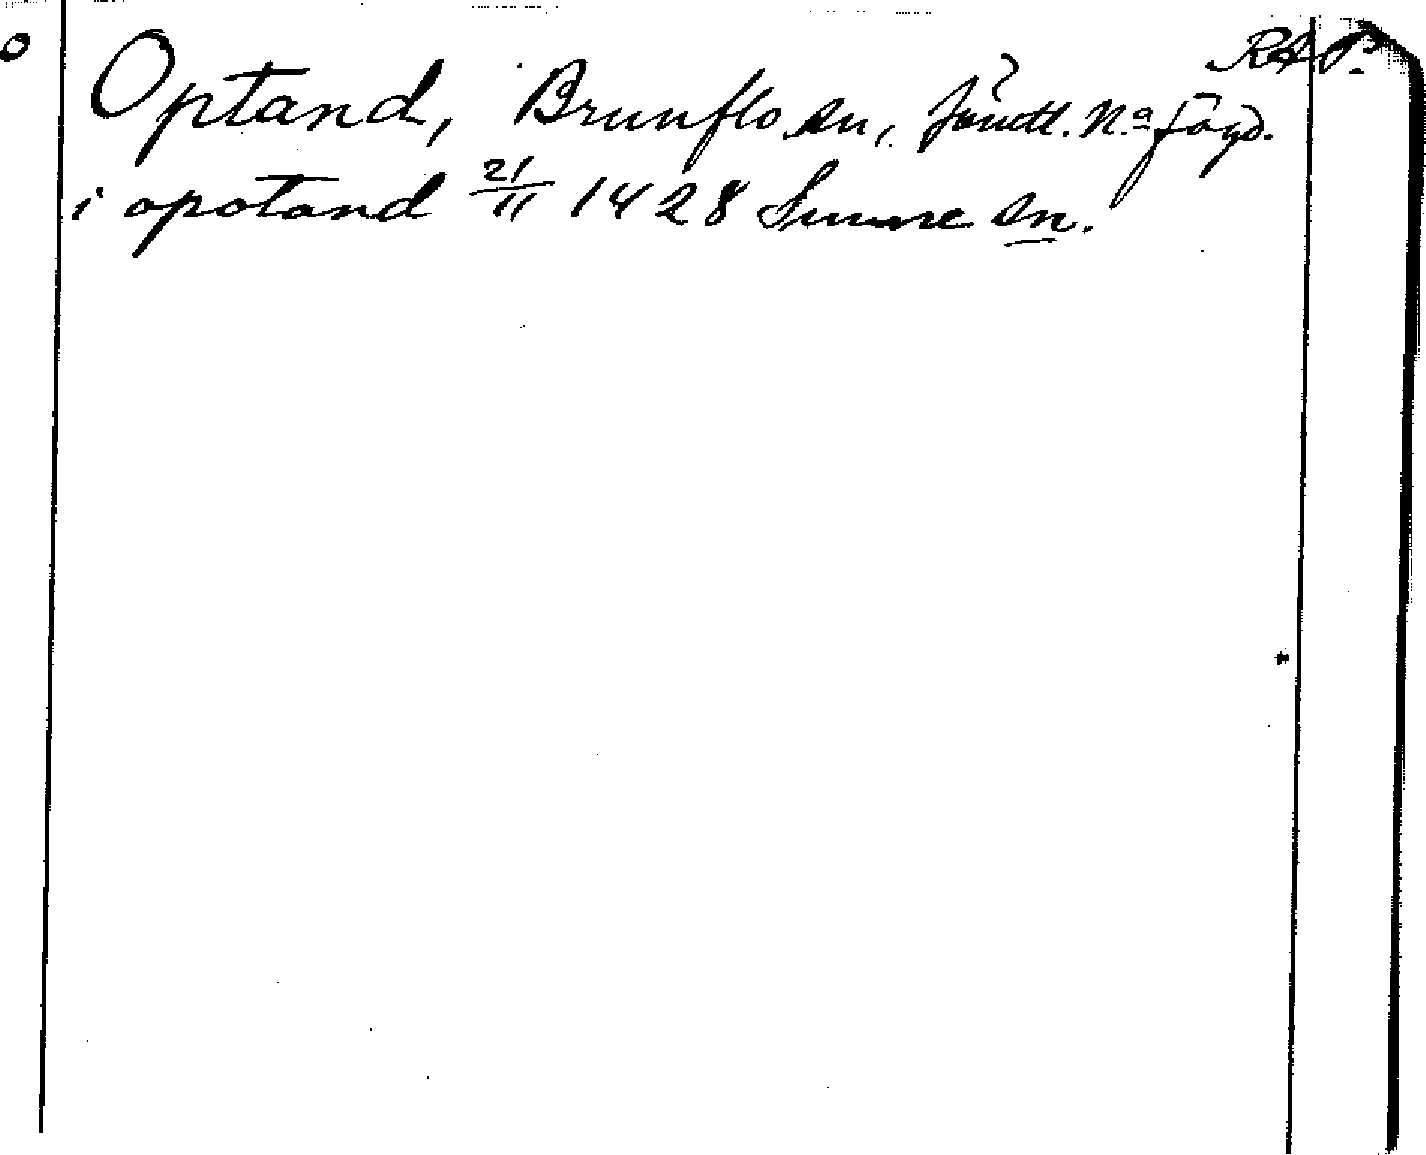 RAP.
Optand, Brunflo sn, Jämtl. N:a fögd.
i opotand 21/11 1428 Sunne sn.